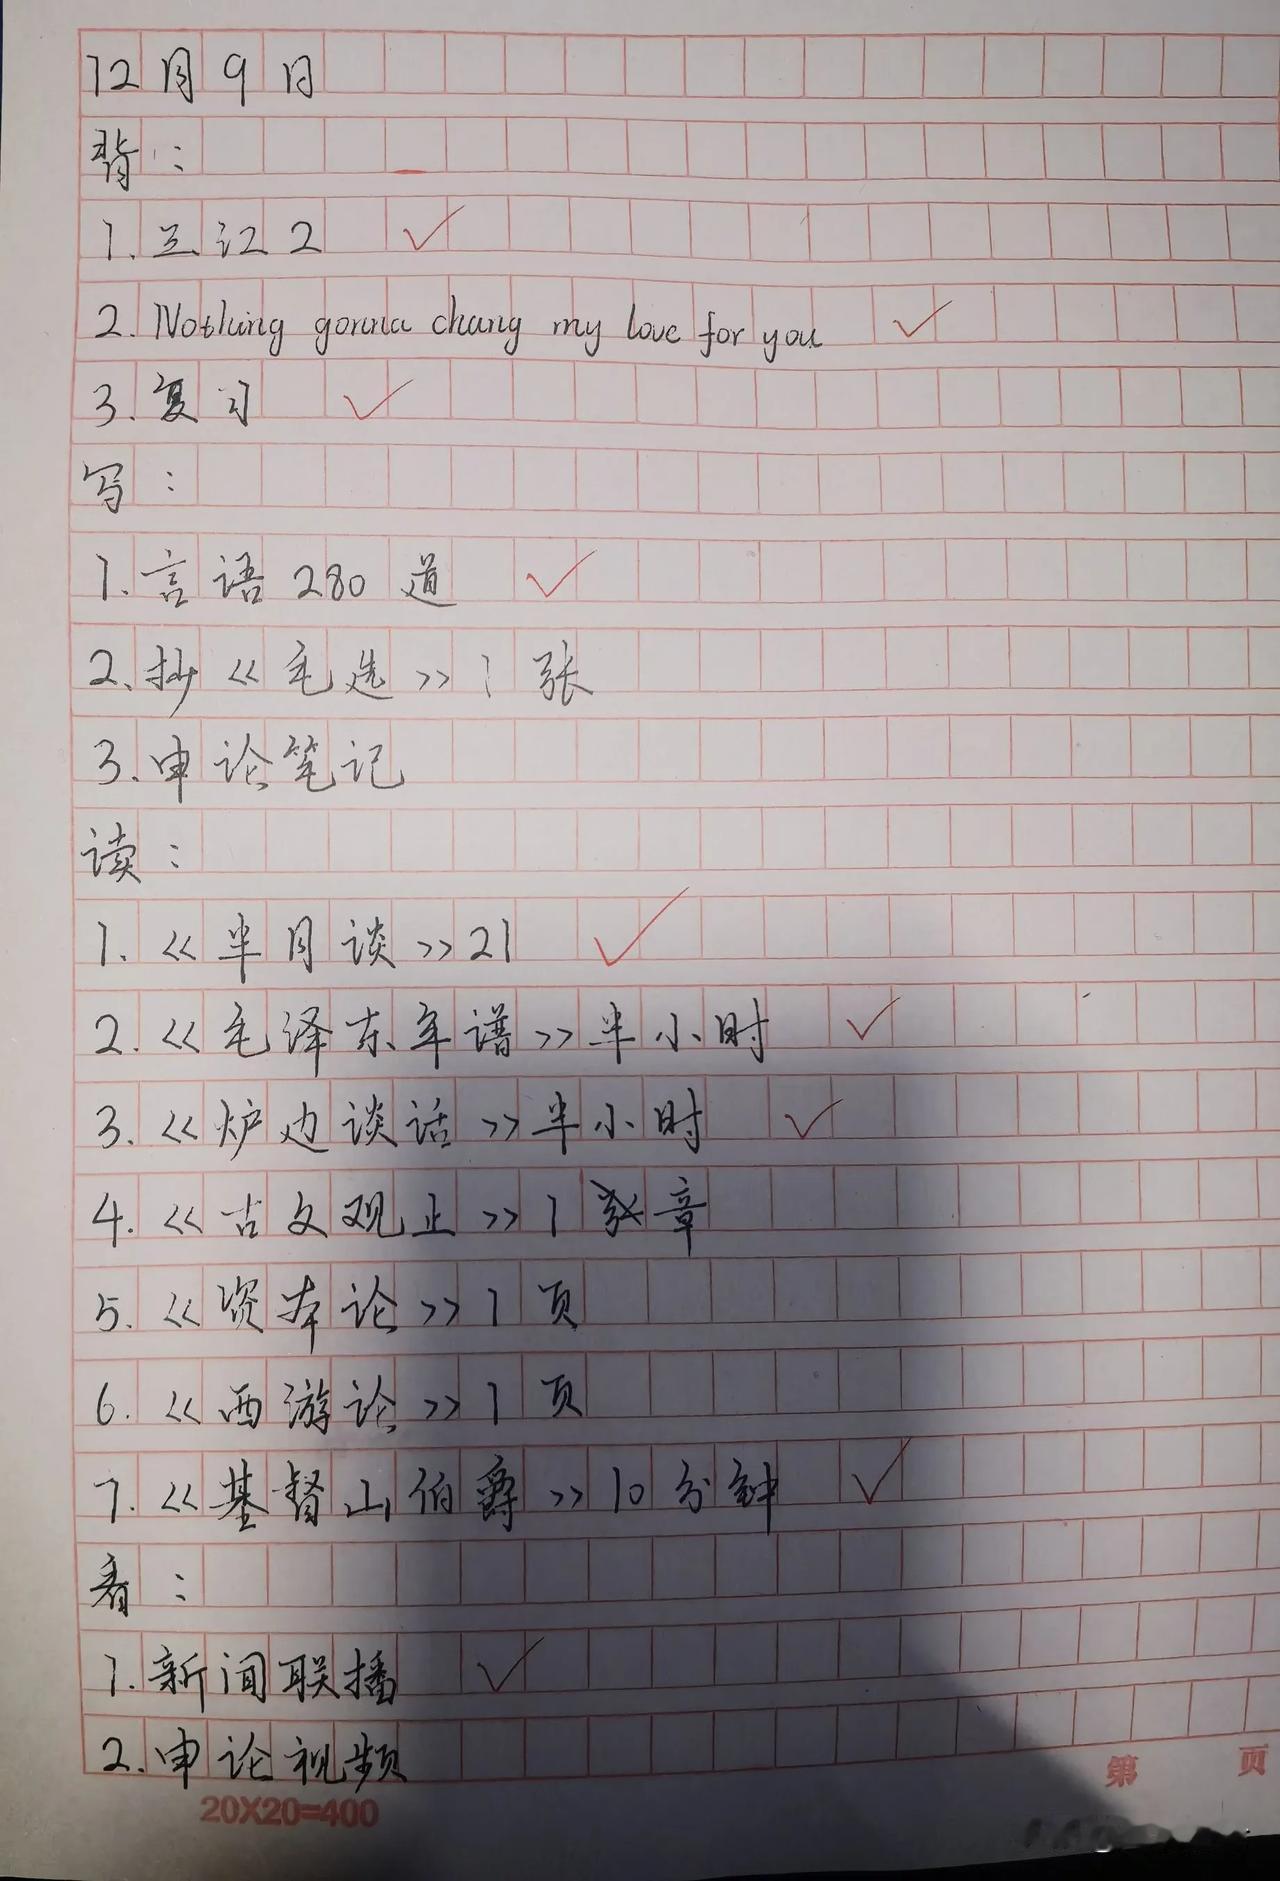 12月9日
背：
1.三江2 ✓
2. Nothing gonna chang my love for you ✓
3.复习 ✓
写：
1.言语280道 ✓
2.抄《毛选》1张
3.申论笔记
读：
1.《半月谈》21 ✓
2.《毛泽东年谱》半小时 ✓
3.《炉边谈话》半小时 ✓
4.《古文观止》1章
5.《资本论》1页
6.《西游论》1页
7.《基督山伯爵》10分钟 ✓
看：
1.新闻联播 ✓
2.申论视频
第 页
20X20=400